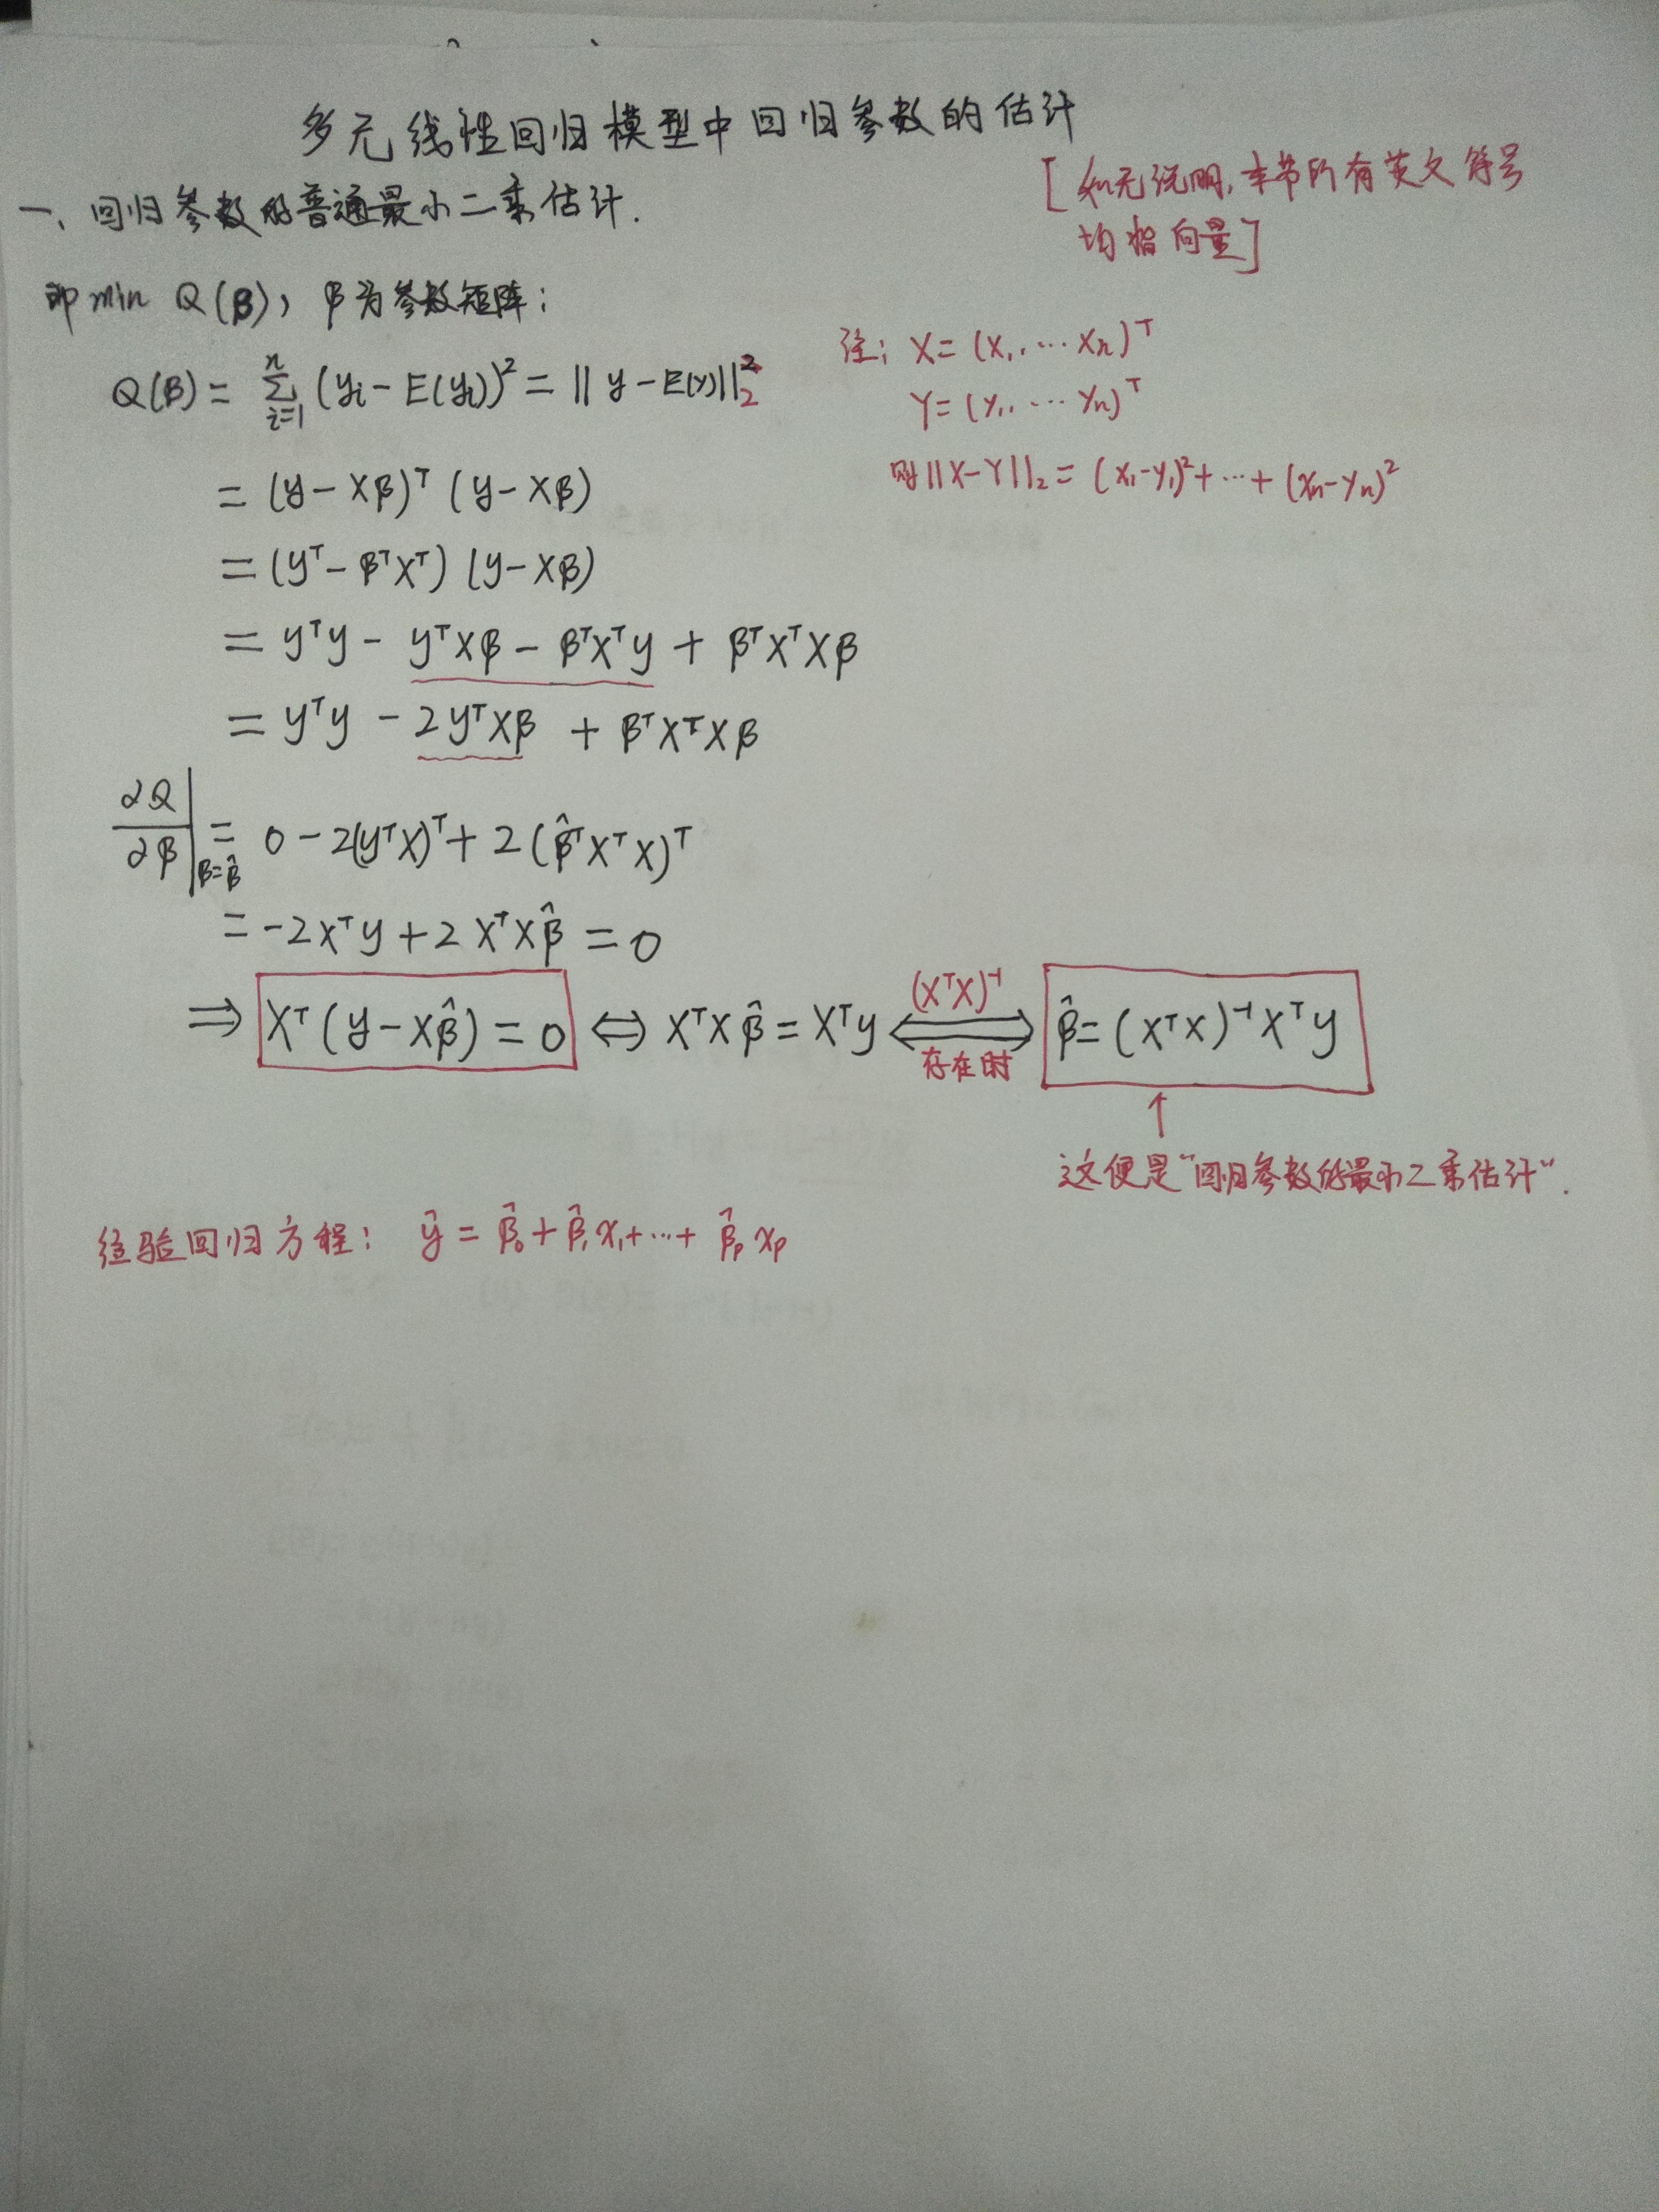 多元线性回归模型中回归参数的估计
[如无说明,本节所有英文符号
均指向量]
一、回归参数的普通最小二乘估计.
即 min Q(β), β为参数矩阵:
Q(β) = ∑ᵢ₌₁ⁿ (yᵢ - E(yᵢ))² = ||y - E(y)||₂²
注: X = (x₁, … xₙ)ᵀ
Y = (y₁, … yₙ)ᵀ
则 ||X-Y||₂ = (x₁-y₁)² + … + (xₙ-yₙ)²
= (y - Xβ)ᵀ (y - Xβ)
= (yᵀ - βᵀXᵀ) (y - Xβ)
= yᵀy - yᵀXβ - βᵀXᵀy + βᵀXᵀXβ
= yᵀy - 2yᵀXβ + βᵀXᵀXβ
∂Q/∂β |β=β̂ = 0 - 2(yᵀX)ᵀ + 2(β̂ᵀXᵀX)ᵀ
= -2Xᵀy + 2XᵀXβ̂ = 0
⇒ Xᵀ(y - Xβ̂) = 0 ⇔ XᵀXβ̂ = Xᵀy ⇔ (XᵀX)⁻¹ 存在时 β̂ = (XᵀX)⁻¹Xᵀy
↑
这便是"回归参数的最小二乘估计".
经验回归方程: ŷ = β̂₀ + β̂₁x₁ + … + β̂ₚxₚ